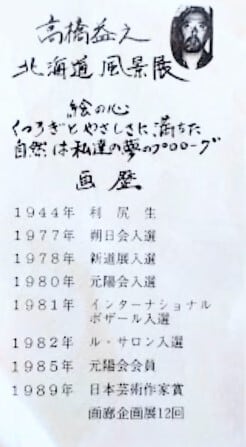 高橋益之
北海道風景展
絵の心
くつろぎとやさしさに満ちた
自然は私達の夢のプロローグ
画歴
1944年 利尻生
1977年 朔日会入選
1978年 新道展入選
1980年 元陽会入選
1981年 インターナショナル
ボザール入選
1982年 ル・サロン入選
1985年 元陽会会員
1989年 日本芸術作家賞
画廊企画展12回